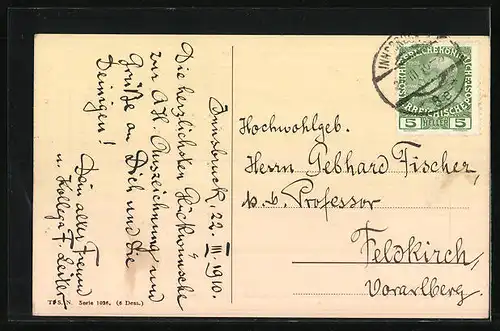 Innsbruck, 22. III. 1910.
Die herzlichsten Glückwünsche
zur Ah. Auszeichnung und
Grüße an Dich und die
Deinigen!
Dein alter Freund
u. Kollege F. Leiter
T. S. N. Serie 1036. (6 Dess.)
INNSBRUCK
5 HELLER 5
Hochwohlgeb.
Herrn Gebhard Fischer,
k. k. Professor
Feldkirch,
Vorarlberg.